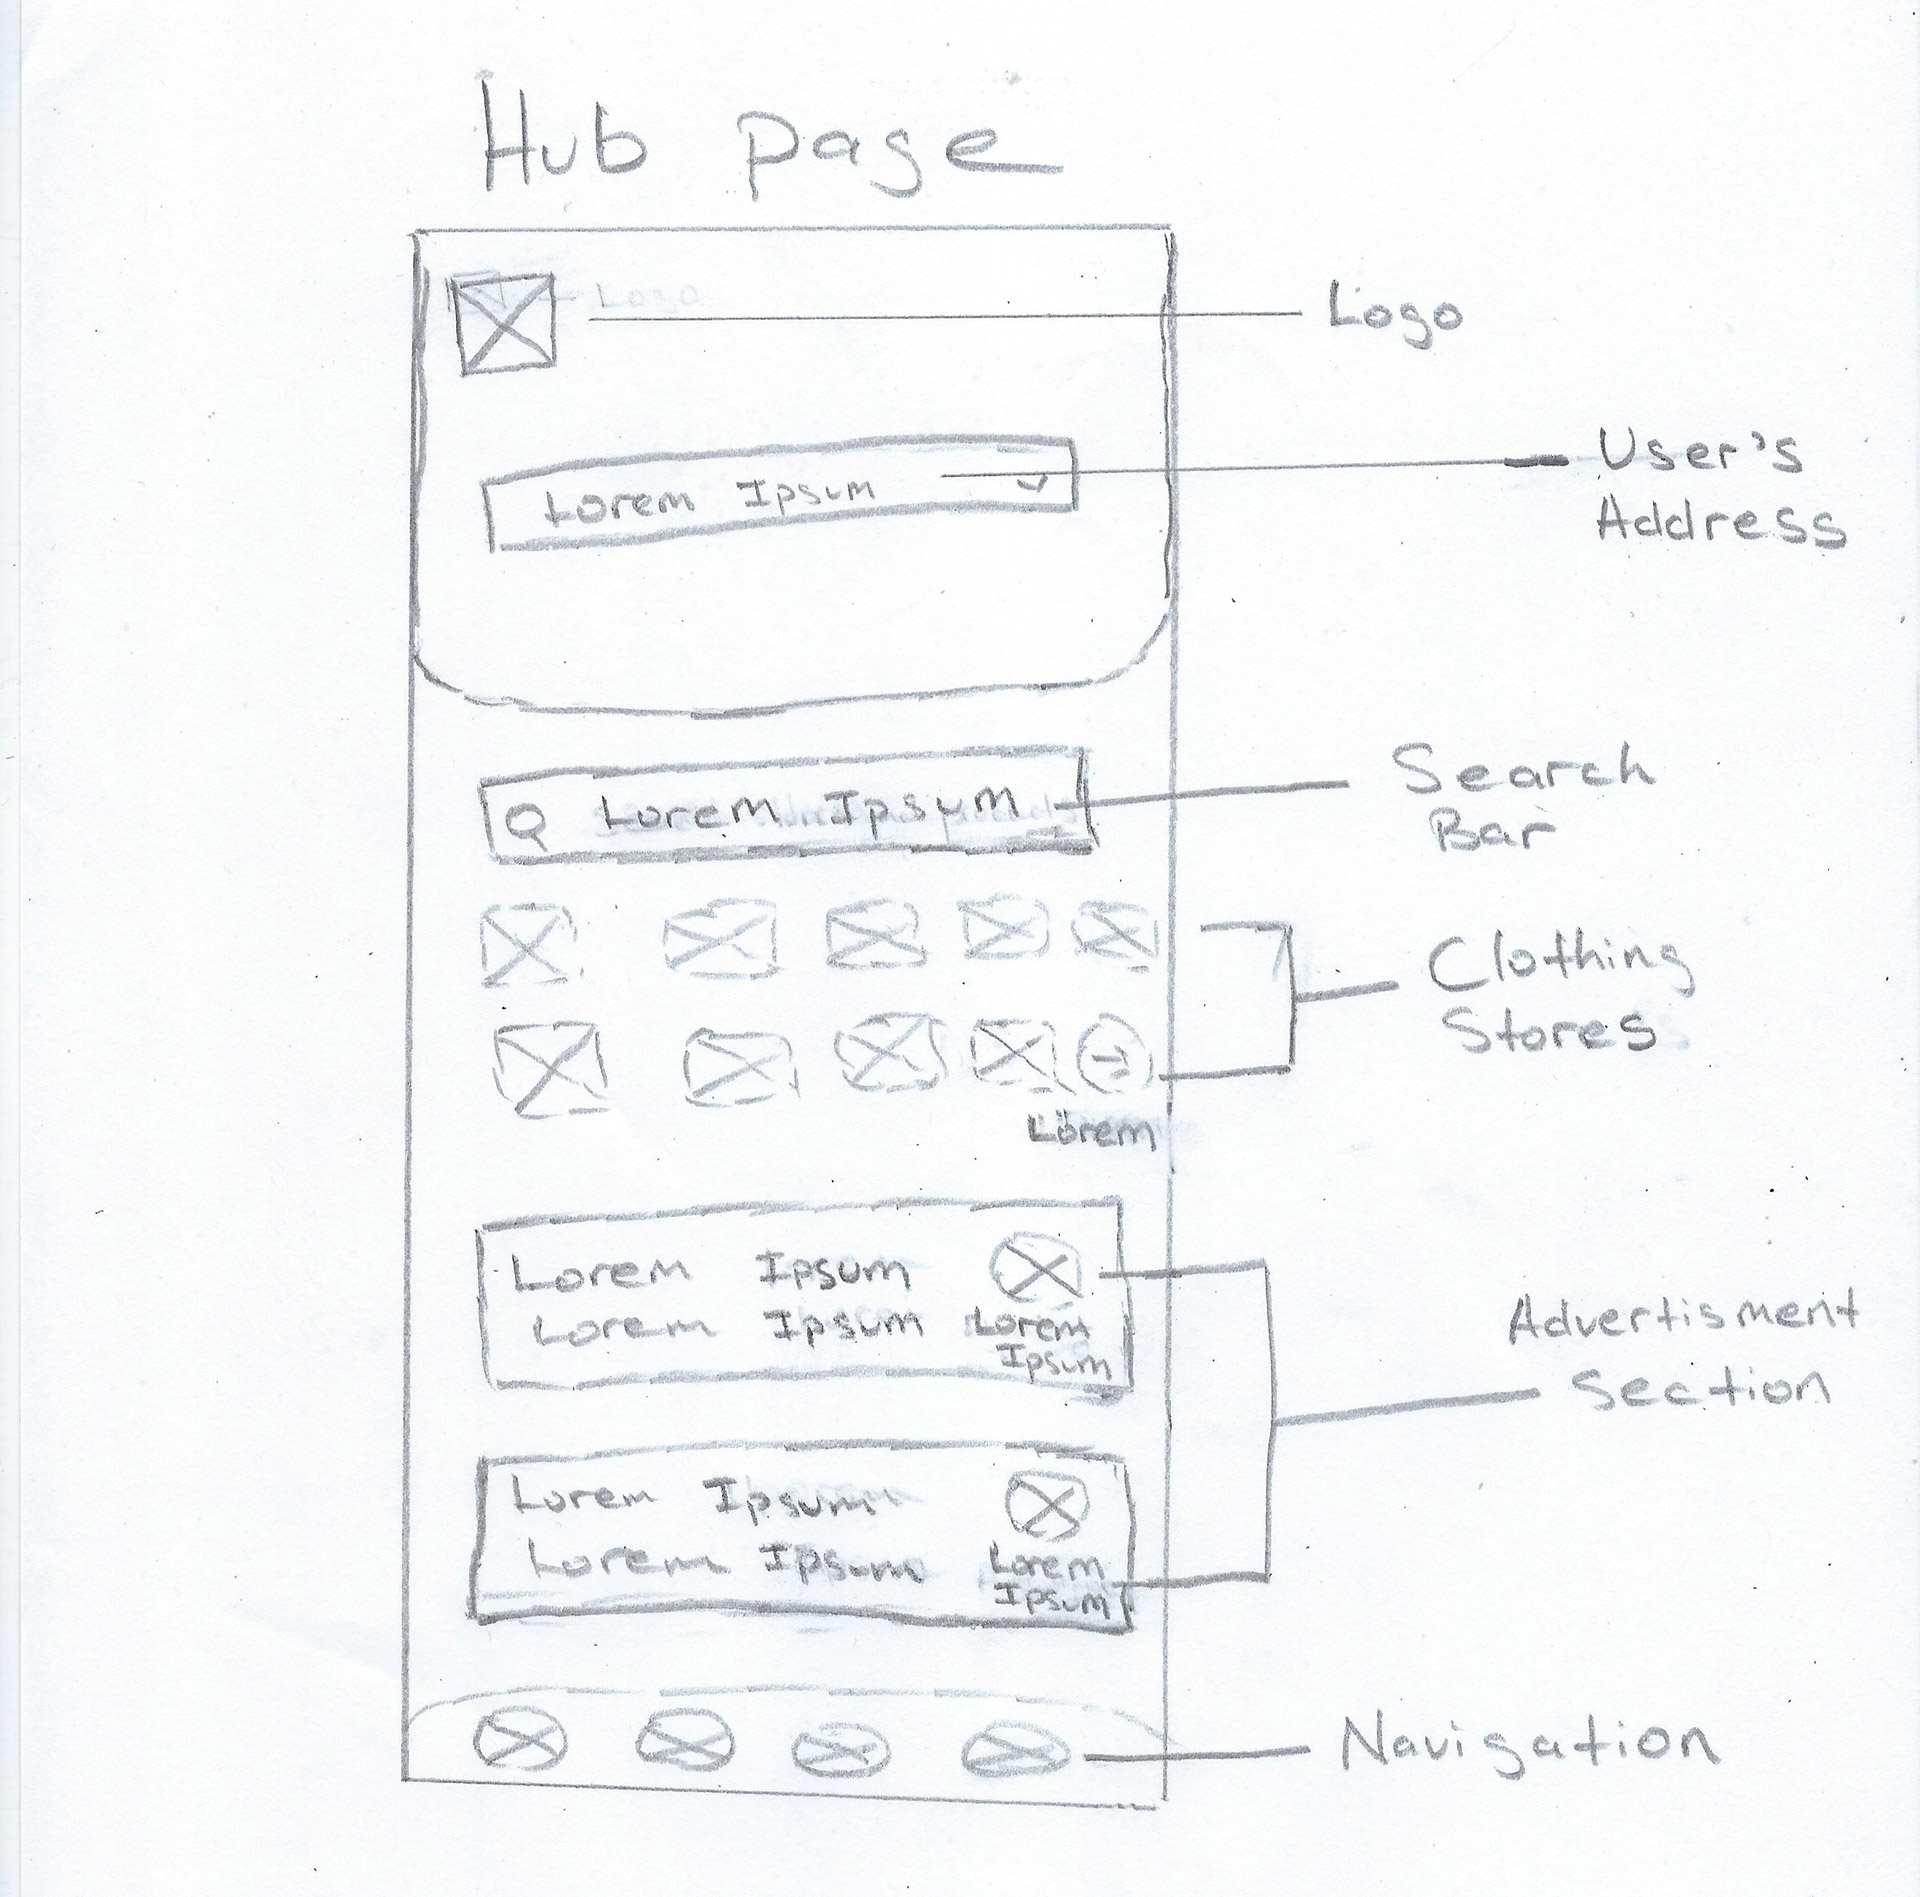 Hub page
Logo
Logo
User's
Address
Lorem Ipsum
Search
Bar
Lorem Ipsum
Clothing
Stores
Lorem
Lorem Ipsum
Lorem Ipsum
Lorem
Ipsum
Advertisment
Section
Lorem Ipsum
Lorem Ipsum
Lorem
Ipsum
Navigation